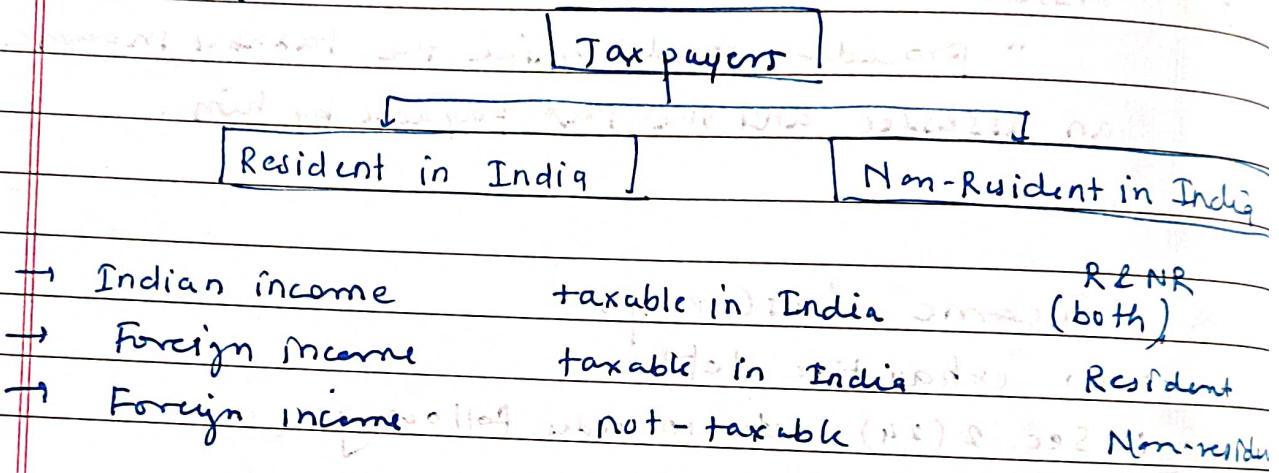 Tax payers
Resident in India
Non-Resident in India
→ Indian income taxable in India R & NR (both)
→ Foreign income taxable in India. Resident
→ Foreign income not-taxable